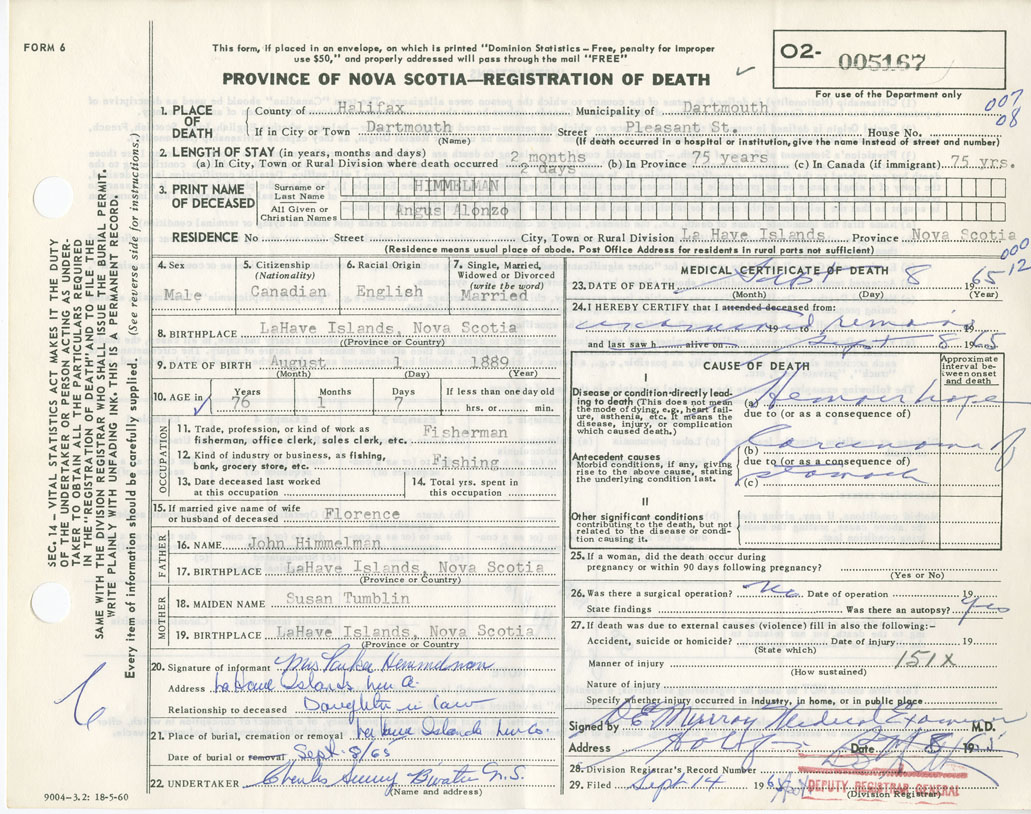 FORM 6
This form, if placed in an envelope, on which is printed "Dominion Statistics – Free, penalty for improper
use $50," and properly addressed will pass through the mail "FREE"
PROVINCE OF NOVA SCOTIA—REGISTRATION OF DEATH
O2- 005167
For use of the Department only
007
08
1. PLACE OF DEATH
County of Halifax Municipality of Dartmouth
If in City or Town Dartmouth Street Pleasant St. House No.
(Name) (If death occurred in a hospital or institution, give the name instead of street and number)
2. LENGTH OF STAY (in years, months and days)
(a) In City, Town or Rural Division where death occurred 2 months 2 days (b) In Province 75 years (c) In Canada (if immigrant) 75 yrs.
3. PRINT NAME OF DECEASED
Surname or Last Name HIMMELMAN
All Given or Christian Names Angus Alonzo
RESIDENCE No Street City, Town or Rural Division La Have Islands. Province Nova Scotia
(Residence means usual place of abode. Post Office Address for residents in rural parts not sufficient)
000
12
4. Sex Male
5. Citizenship (Nationality) Canadian
6. Racial Origin English
7. Single, Married, Widowed or Divorced (write the word) Married
8. BIRTHPLACE LaHave Islands, Nova Scotia
(Province or Country)
9. DATE OF BIRTH August 1 1889
(Month) (Day) (Year)
10. AGE in Years 76 Months 1 Days 7 If less than one day old hrs. or min.
OCCUPATION
11. Trade, profession, or kind of work as fisherman, office clerk, sales clerk, etc. Fisherman
12. Kind of industry or business, as fishing, bank, grocery store, etc. Fishing
13. Date deceased last worked at this occupation
14. Total yrs. spent in this occupation
15. If married give name of wife or husband of deceased Florence
FATHER
16. NAME John Himmelman
17. BIRTHPLACE LaHave Islands, Nova Scotia
(Province or Country)
MOTHER
18. MAIDEN NAME Susan Tumblin
19. BIRTHPLACE LaHave Islands, Nova Scotia
(Province or Country)
20. Signature of informant Mrs Himmelman
Address LaHave Islands
Relationship to deceased Daughter in law
21. Place of burial, cremation or removal LaHave Islands
Date of burial or removal Sept. 8/65
22. UNDERTAKER N.S.
(Name and address)
9004-3.2: 18-5-60
MEDICAL CERTIFICATE OF DEATH
23. DATE OF DEATH Sept 8 1965
(Month) (Day) (Year)
24. I HEREBY CERTIFY that I attended deceased from:
examined remains
19 to 19
and last saw h alive on Sept 8 1965
CAUSE OF DEATH
Approximate interval between onset and death
I
Disease or condition directly leading to death (This does not mean the mode of dying, e.g., heart failure, asthenia, etc. It means the disease, injury, or complication which caused death.)
(a) Hemorrhage
due to (or as a consequence of)
Antecedent causes
Morbid conditions, if any, giving rise to the above cause, stating the underlying condition last.
(b) Carcinoma of
due to (or as a consequence of)
(c) stomach
II
Other significant conditions
contributing to the death, but not related to the disease or condition causing it.
25. If a woman, did the death occur during pregnancy or within 90 days following pregnancy?
(Yes or No)
26. Was there a surgical operation? No. Date of operation 19
State findings Was there an autopsy? Yes
27. If death was due to external causes (violence) fill in also the following:-
Accident, suicide or homicide? Date of injury 19
(State which)
Manner of injury 151X
(How sustained)
Nature of injury
Specify whether injury occurred in industry, in home, or in public place
Signed by Murray Medical Examiner M.D.
Address Halifax Date 8 19
28. Division Registrar's Record Number
29. Filed Sept 14 196
DEPUTY REGISTRAR GENERAL
(Division Registrar)
SEC. 14 – VITAL STATISTICS ACT MAKES IT THE DUTY
OF THE UNDERTAKER OR PERSON ACTING AS UNDER-
TAKER TO OBTAIN ALL THE PARTICULARS REQUIRED
IN THE "REGISTRATION OF DEATH" AND TO FILE THE
SAME WITH THE DIVISION REGISTRAR WHO SHALL ISSUE THE BURIAL PERMIT.
WRITE PLAINLY WITH UNFADING INK. THIS IS A PERMANENT RECORD.
Every item of information should be carefully supplied. (See reverse side for instructions.)